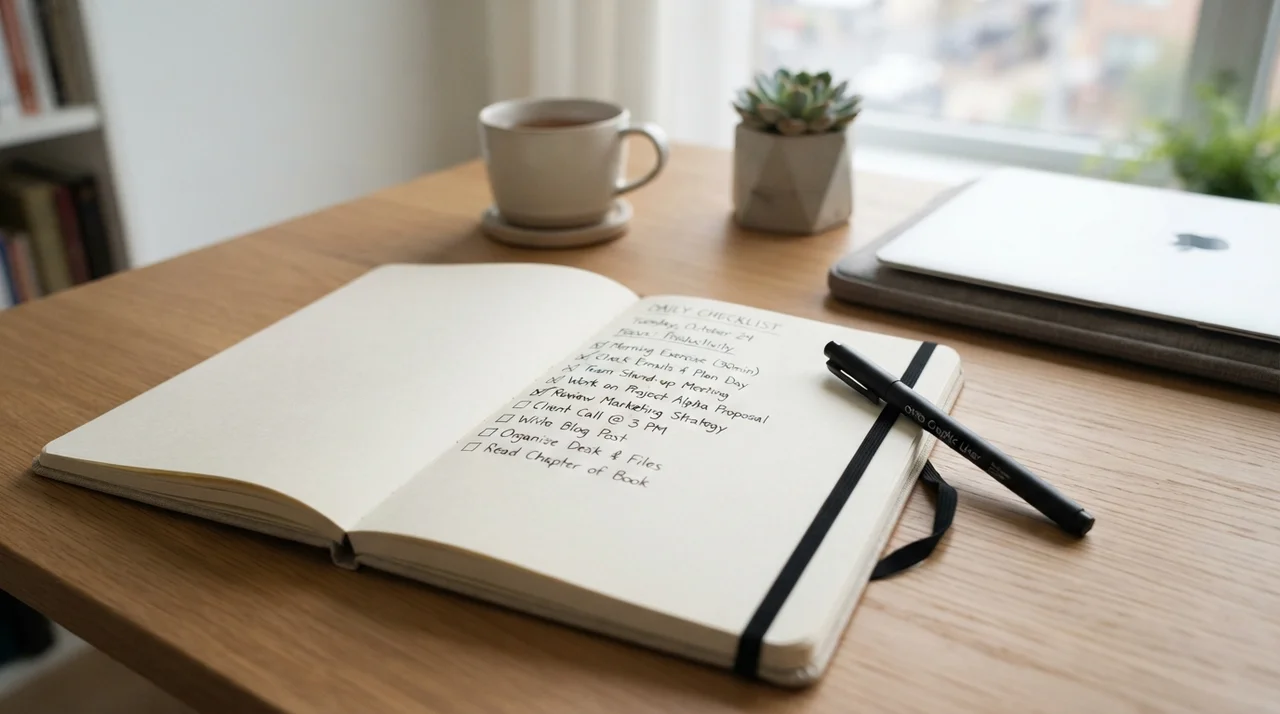 DAILY CHECKLIST
Tuesday, October 24
Focus: Productivity
☑ Morning Exercise (30min)
☑ Check Emails & Plan Day
☑ Team Stand-up Meeting
☑ Work on Project Alpha Proposal
☑ Review Marketing Strategy
☐ Client Call @ 3 PM
☐ Write Blog Post
☐ Organise Desk & Files
☐ Read Chapter of Book
Graphic Liner